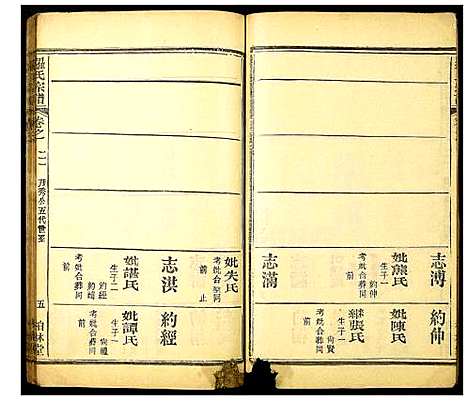 志溥
妣熊氏
生子一
約仲
考妣合葬同
前
志滿
約仲
妣陳氏
繼張氏
生子一
尚賢
考妣合葬同
前
孫氏宗譜
卷之二
五代世系
五
柏林堂
妣失氏
考妣合墓同
前
止
志淇
妣諶氏
生子二
約經
約緒
考妣合葬同
前
約經
妣譚氏
生子一
尚禮
考妣合葬同
前